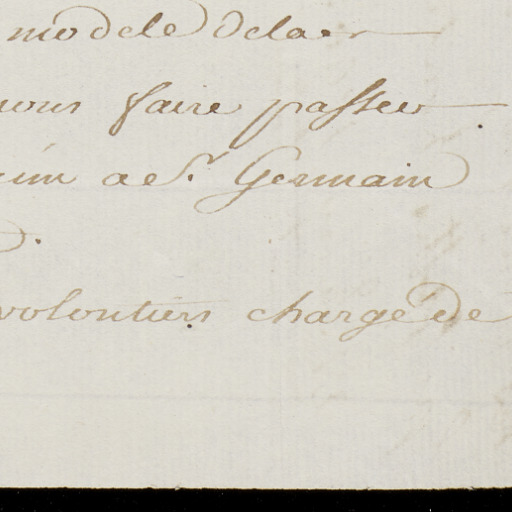 modele dela
vous faire passer
a St. Germain
volontiers chargé de